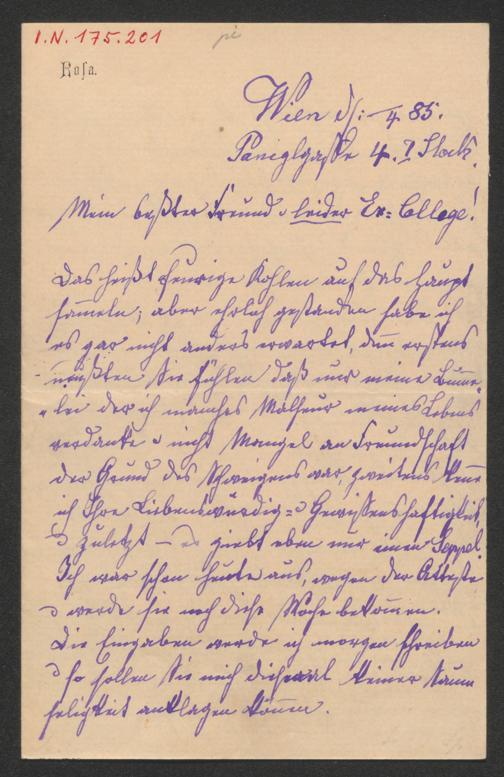 I.N. 175.201
Rosa.
Wien d/: /4 85.
Paniglgasse 4. I Stock
Mein beßter Freund u leider Ex=College!
Das heißt feurige Kohlen auf das Haupt
sameln; aber ehrlich gestanden habe ich
es gar nicht anders erwartet, den erstens
müßten Sie fühlen daß nur meine Bume„
„lei der ich manches Malheur meines Lebens
verdanke u nicht Mangel an Freundschaft
der Grund des Schweigens war, zweitens kene
ich Ihre Liebenswürdig= u Gewissenshaftigkeit,
u zuletzt – es giebt eben nur einen Seppel.
Ich war schon heute aus, wegen der Atteste
u werde sie noch diese Woche bekomen.
Die Eingaben werde ich morgen schreiben
u so sollen Sie mich diesmal keiner Saum
seligkeit anklagen könen.